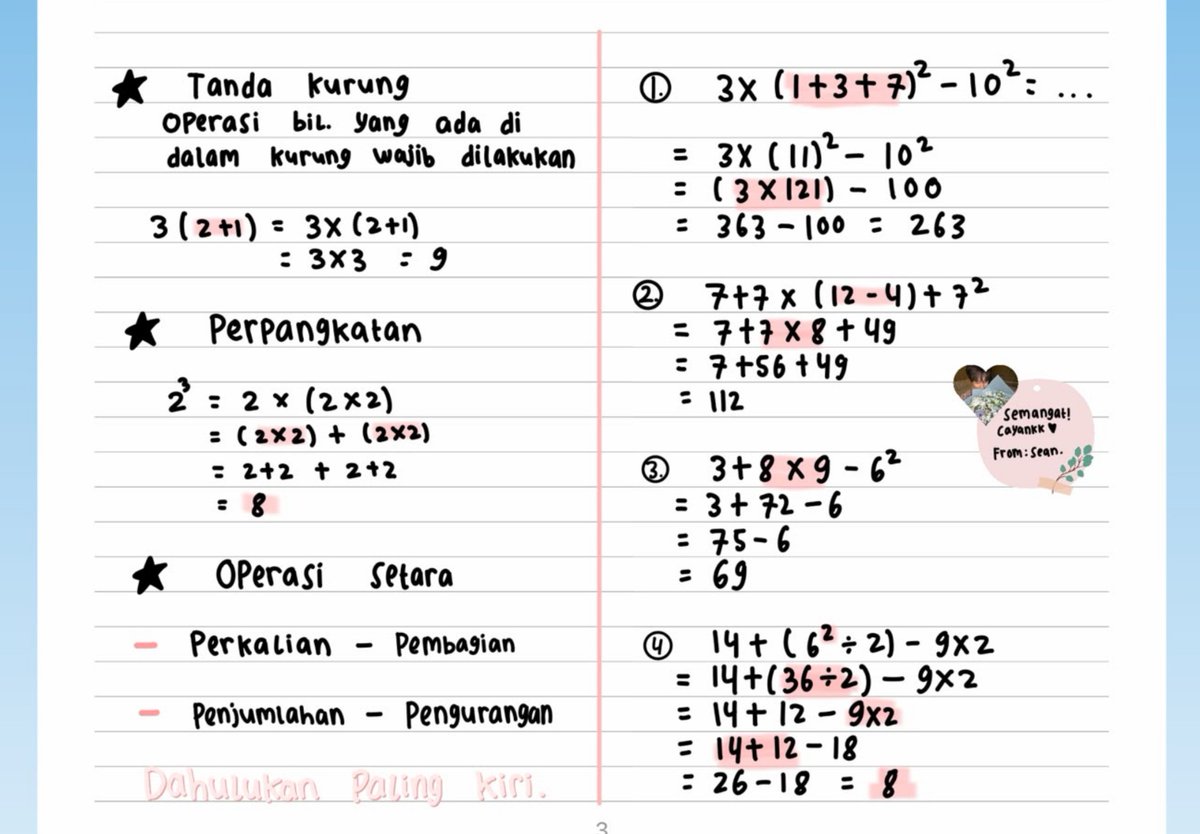 ★ Tanda kurung
Operasi bil. yang ada di
dalam kurung wajib dilakukan
3 (2+1) = 3×(2+1)
= 3×3 = 9
★ Perpangkatan
2³ = 2 × (2×2)
= (2×2) + (2×2)
= 2+2 + 2+2
= 8
★ Operasi setara
– Perkalian – Pembagian
– Penjumlahan – Pengurangan
Dahulukan Paling kiri.
①. 3× (1+3+7)² – 10² = ...
= 3× (11)² – 10²
= (3×121) – 100
= 363 – 100 = 263
②. 7+7 × (12-4) + 7²
= 7+7 × 8 + 49
= 7+56+49
= 112
③. 3+8 × 9 – 6²
= 3+ 72 – 6
= 75 – 6
= 69
④ 14 + (6² ÷ 2) – 9×2
= 14+(36÷2) – 9×2
= 14 + 12 – 9×2
= 14+12 – 18
= 26 – 18 = 8
Semangat!
Cayankk ♥
From: Sean.
3